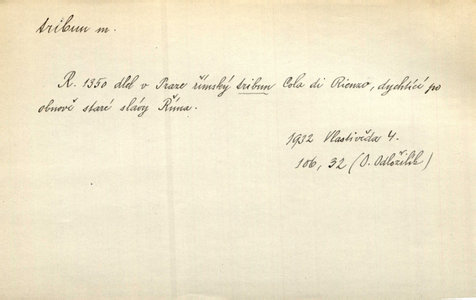 tribun m.
R. 1350 dlel v Praze římský tribun Cola di Rienzo, dychtící po
obnově staré slávy Říma.
1932 Vlastivěda 4.
106, 32 (O. Odložilík)